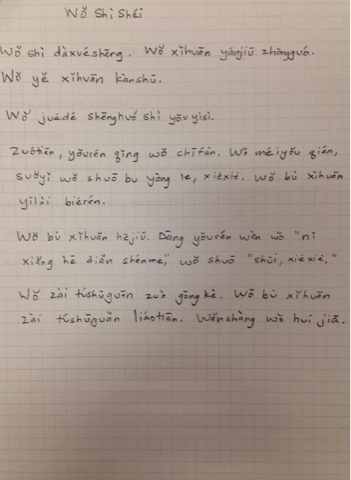 Wǒ Shì Shéi
Wǒ shì dàxuéshēng. Wǒ xǐhuān yánjiū zhōngguó.
Wǒ yě xǐhuān kànshū.
Wǒ juédé shēnghuó shì yǒuyìsī.
Zuótiān, yǒurén qǐng wǒ chīfàn. Wǒ méiyǒu qián,
suǒyǐ wǒ shuō bu yòng le, xièxiè. Wǒ bù xǐhuān
yīlài biérén.
Wǒ bù xǐhuān hējiǔ. Dāng yǒurén wèn wǒ "nǐ
xiǎng hē diǎn shénme," wǒ shuō "shuǐ, xièxiè."
Wǒ zài túshūguǎn zuò gōngkè. Wǒ bù xǐhuān
zài túshūguǎn liáotiān. Wǎnshàng wǒ huí jiā.